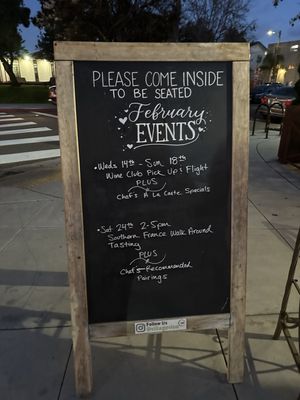 PLEASE COME INSIDE
TO BE SEATED
February
EVENTS
• Weds 14th - Sun 18th
Wine Club Pick Up & Flight
PLUS
Chef's A La Carte Specials
• Sat 24th 2-5pm
Southern France Walk Around
Tasting
PLUS
Chef-Recommended
Pairings
Follow Us